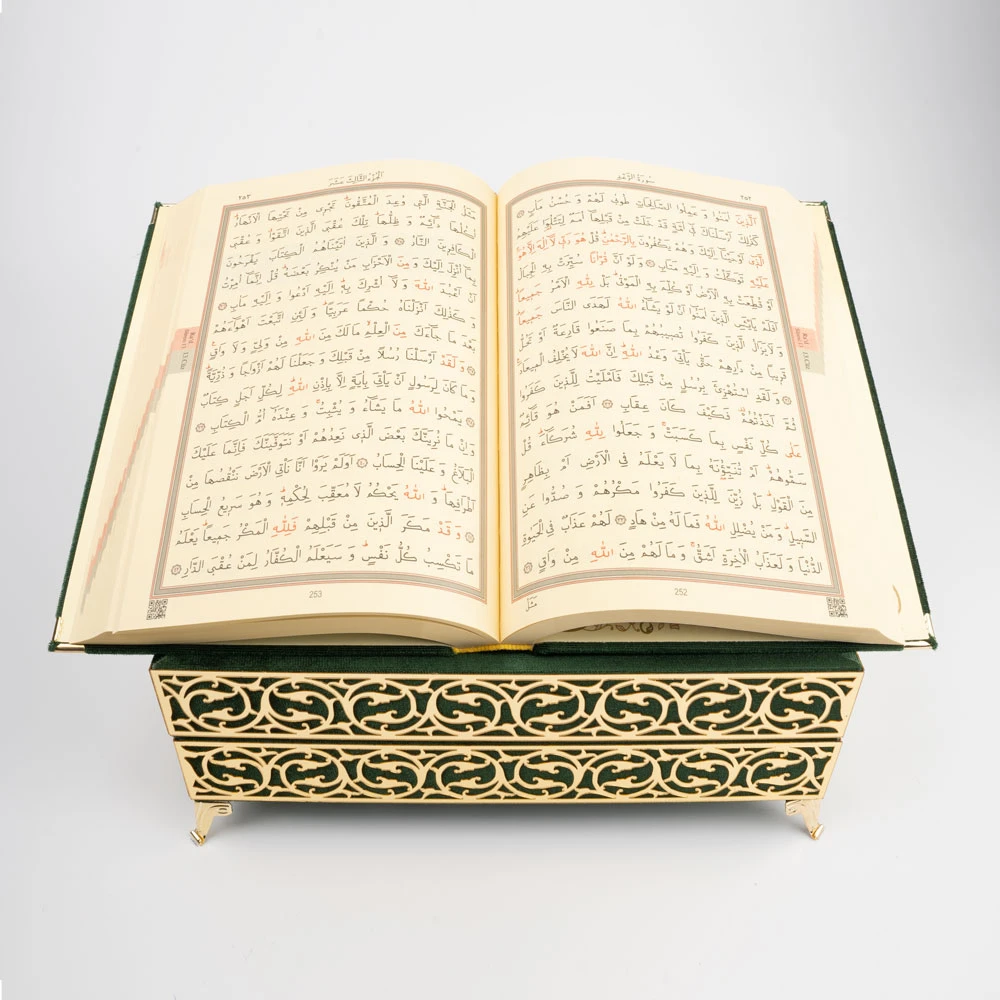 سُورَةُ الرَّعْدِ
٢٥٢
اَلَّذِينَ اٰمَنُوا وَ عَمِلُوا الصَّالِحَاتِ طُوبٰى لَهُمْ وَ حُسْنُ مَاٰبٍ
كَذٰلِكَ اَرْسَلْنَاكَ فِٓي اُمَّةٍ قَدْ خَلَتْ مِنْ قَبْلِهَٓا اُمَمٌ لِتَتْلُوَا۬ عَلَيْهِمُ
الَّذِٓي اَوْحَيْنَٓا اِلَيْكَ وَ هُمْ يَكْفُرُونَ بِالرَّحْمٰنِۜ قُلْ هُوَ رَبِّي لَٓا اِلٰهَ اِلَّا هُوَۚ
عَلَيْهِ تَوَكَّلْتُ وَ اِلَيْهِ مَتَابِ وَ لَوْ اَنَّ قُرْاٰنًا سُيِّرَتْ بِهِ الْجِبَالُ
اَوْ قُطِّعَتْ بِهِ الْاَرْضُ اَوْ كُلِّمَ بِهِ الْمَوْتٰىۜ بَلْ لِلّٰهِ الْاَمْرُ جَمِيعًاۜ
اَفَلَمْ يَا۬يْـَٔسِ الَّذِينَ اٰمَنُٓوا اَنْ لَوْ يَشَٓاءُ اللّٰهُ لَهَدَى النَّاسَ جَمِيعًاۜ
وَ لَا يَزَالُ الَّذِينَ كَفَرُوا تُصِيبُهُمْ بِمَا صَنَعُوا قَارِعَةٌ اَوْ تَحُلُّ
قَرِيبًا مِنْ دَارِهِمْ حَتّٰى يَأْتِيَ وَعْدُ اللّٰهِۜ اِنَّ اللّٰهَ لَا يُخْلِفُ الْمِيعَادَ
وَ لَقَدِ اسْتُهْزِئَ بِرُسُلٍ مِنْ قَبْلِكَ فَاَمْلَيْتُ لِلَّذِينَ كَفَرُوا
ثُمَّ اَخَذْتُهُمْ۠ فَكَيْفَ كَانَ عِقَابِ اَفَمَنْ هُوَ قَٓائِمٌ
عَلٰى كُلِّ نَفْسٍ بِمَا كَسَبَتْۚ وَ جَعَلُوا لِلّٰهِ شُرَكَٓاءَۜ قُلْ
سَمُّوهُمْۜ اَمْ تُنَبِّؤُ۫نَهُ بِمَا لَا يَعْلَمُ فِي الْاَرْضِ اَمْ بِظَاهِرٍ
مِنَ الْقَوْلِۜ بَلْ زُيِّنَ لِلَّذِينَ كَفَرُوا مَكْرُهُمْ وَ صُدُّوا عَنِ
السَّبِيلِۜ وَ مَنْ يُضْلِلِ اللّٰهُ فَمَا لَهُ مِنْ هَادٍ لَهُمْ عَذَابٌ فِي الْحَيٰوةِ
الدُّنْيَا وَ لَعَذَابُ الْاٰخِرَةِ اَشَقُّۚ وَ مَا لَهُمْ مِنَ اللّٰهِ مِنْ وَاقٍ
مَثَلُ
252
اَلْجُزْءُ الثَّالِثُ عَشَرَ
٢٥٣
مَثَلُ الْجَنَّةِ الَّتِي وُعِدَ الْمُتَّقُونَۜ تَجْرِي مِنْ تَحْتِهَا الْاَنْهَارُۜ
اُكُلُهَا دَٓائِمٌ وَ ظِلُّهَاۜ تِلْكَ عُقْبَى الَّذِينَ اتَّقَوْاۗ وَ عُقْبَى
الْكَافِرِينَ النَّارُ وَ الَّذِينَ اٰتَيْنَاهُمُ الْكِتَابَ يَفْرَحُونَ
بِمَٓا اُنْزِلَ اِلَيْكَ وَ مِنَ الْاَحْزَابِ مَنْ يُنْكِرُ بَعْضَهُۜ قُلْ اِنَّمَٓا اُمِرْتُ
اَنْ اَعْبُدَ اللّٰهَ وَ لَٓا اُشْرِكَ بِهِۜ اِلَيْهِ اَدْعُوا وَ اِلَيْهِ مَاٰبِ
وَ كَذٰلِكَ اَنْزَلْنَاهُ حُكْمًا عَرَبِيًّاۜ وَ لَئِنِ اتَّبَعْتَ اَهْوَٓاءَهُمْ
بَعْدَ مَا جَٓاءَكَ مِنَ الْعِلْمِۙ مَا لَكَ مِنَ اللّٰهِ مِنْ وَلِيٍّ وَ لَا وَاقٍ
وَ لَقَدْ اَرْسَلْنَا رُسُلًا مِنْ قَبْلِكَ وَ جَعَلْنَا لَهُمْ اَزْوَاجًا وَ ذُرِّيَّةًۜ
وَ مَا كَانَ لِرَسُولٍ اَنْ يَأْتِيَ بِاٰيَةٍ اِلَّا بِاِذْنِ اللّٰهِۜ لِكُلِّ اَجَلٍ كِتَابٌ
يَمْحُوا اللّٰهُ مَا يَشَٓاءُ وَ يُثْبِتُۚ وَ عِنْدَهُٓ اُمُّ الْكِتَابِ
وَ اِنْ مَا نُرِيَنَّكَ بَعْضَ الَّذِي نَعِدُهُمْ اَوْ نَتَوَفَّيَنَّكَ فَاِنَّمَا عَلَيْكَ
الْبَلَاغُ وَ عَلَيْنَا الْحِسَابُ اَوَلَمْ يَرَوْا اَنَّا نَأْتِي الْاَرْضَ نَنْقُصُهَا مِنْ
اَطْرَافِهَاۜ وَ اللّٰهُ يَحْكُمُ لَا مُعَقِّبَ لِحُكْمِهِۜ وَ هُوَ سَرِيعُ الْحِسَابِ
وَ قَدْ مَكَرَ الَّذِينَ مِنْ قَبْلِهِمْ فَلِلّٰهِ الْمَكْرُ جَمِيعًاۜ يَعْلَمُ
مَا تَكْسِبُ كُلُّ نَفْسٍۜ وَ سَيَعْلَمُ الْكُفَّارُ لِمَنْ عُقْبَى الدَّارِ
253